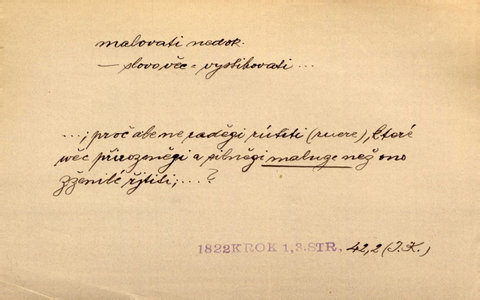 malovati nedok.
— slovo věc = vystihovati ...
...; proč abe ne raděgi rútiti (ruere), které
wěc přirozněgi a silněgi maluge než ono
zženilé řjtili; ... ?
1822 KROK 1, 3. STR, 42,2 (J.K.)